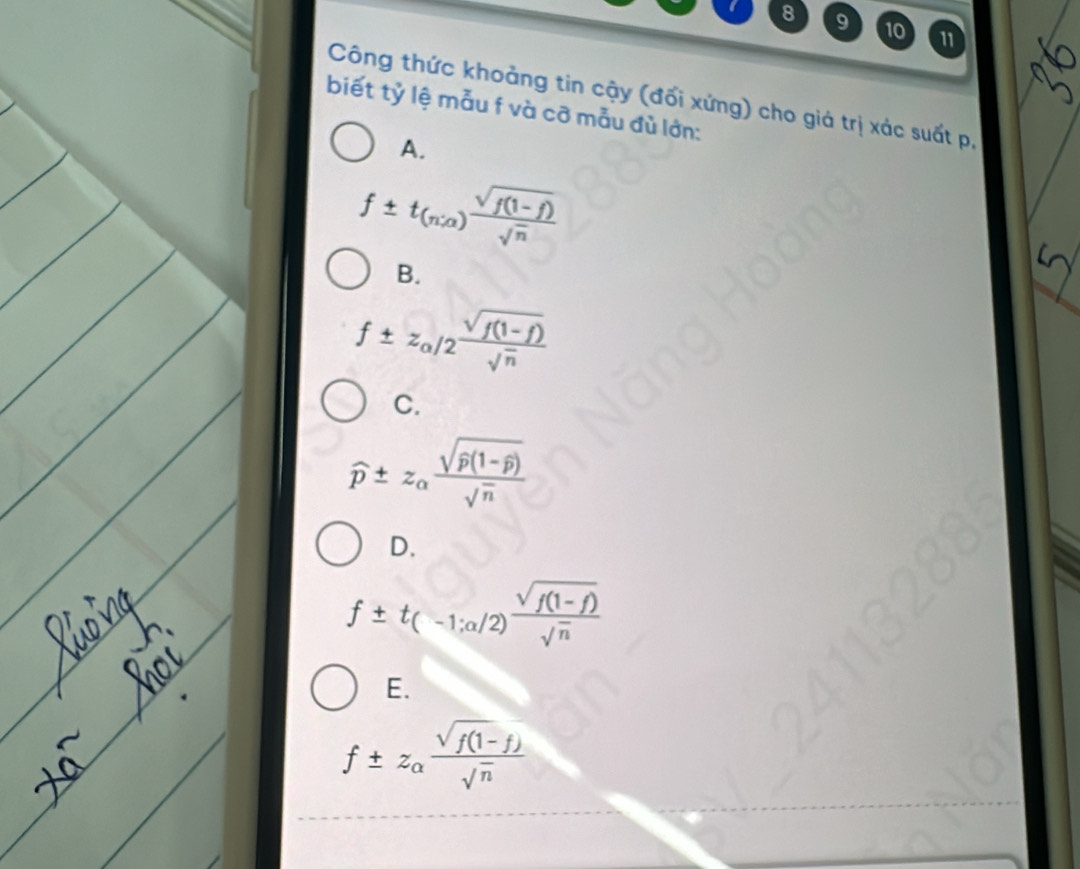 7 8 9 10 11
Công thức khoảng tin cậy (đối xứng) cho giá trị xác suất p,
biết tỷ lệ mẫu f và cỡ mẫu đủ lớn:
A.
f ± t(n;α) √f(1-f) / √n
B.
f ± zα/2 √f(1-f) / √n
C.
p̂ ± zα √p̂(1-p̂) / √n
D.
f ± t( -1;α/2) √f(1-f) / √n
E.
f ± zα √f(1-f) / √n
36
5
xã
hội
Nguyễn Năng Hoàng